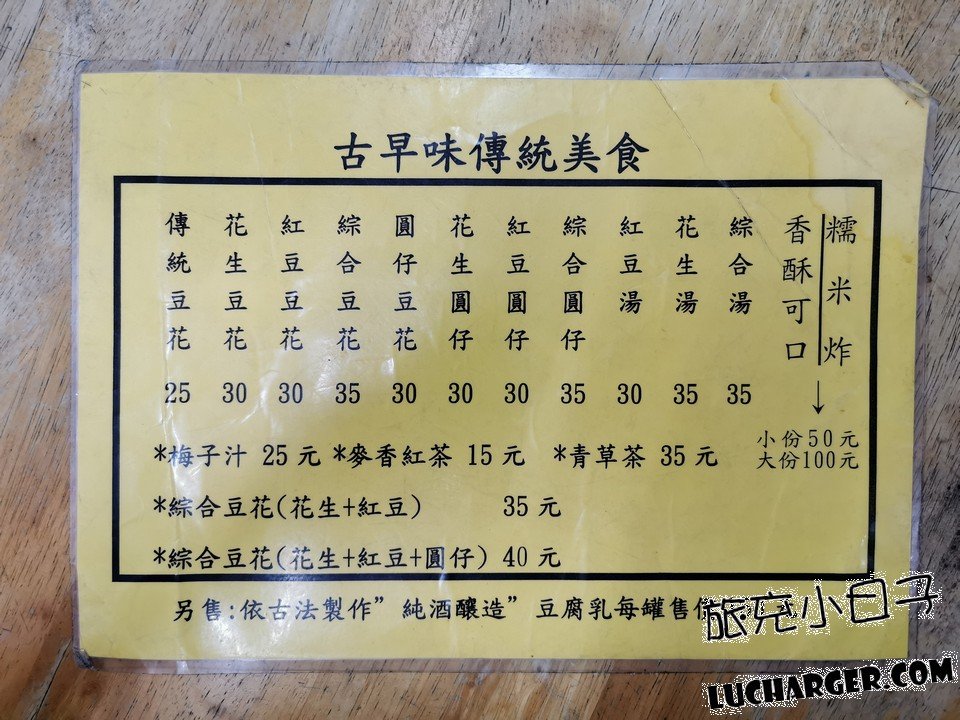 古早味傳統美食
傳統豆花 25
花生豆花 30
紅豆豆花 30
綜合豆花 35
圓仔豆花 30
花生圓仔 30
紅豆圓仔 30
綜合圓仔 35
紅豆湯 30
花生湯 35
綜合湯 35
香酥可口
糯米炸
↓
小份50元
大份100元
*梅子汁 25元 *麥香紅茶 15元 *青草茶 35元
*綜合豆花(花生+紅豆) 35元
*綜合豆花(花生+紅豆+圓仔) 40元
另售:依古法製作”純酒釀造”豆腐乳每罐售
旅充小日子
LUCHARGER.COM